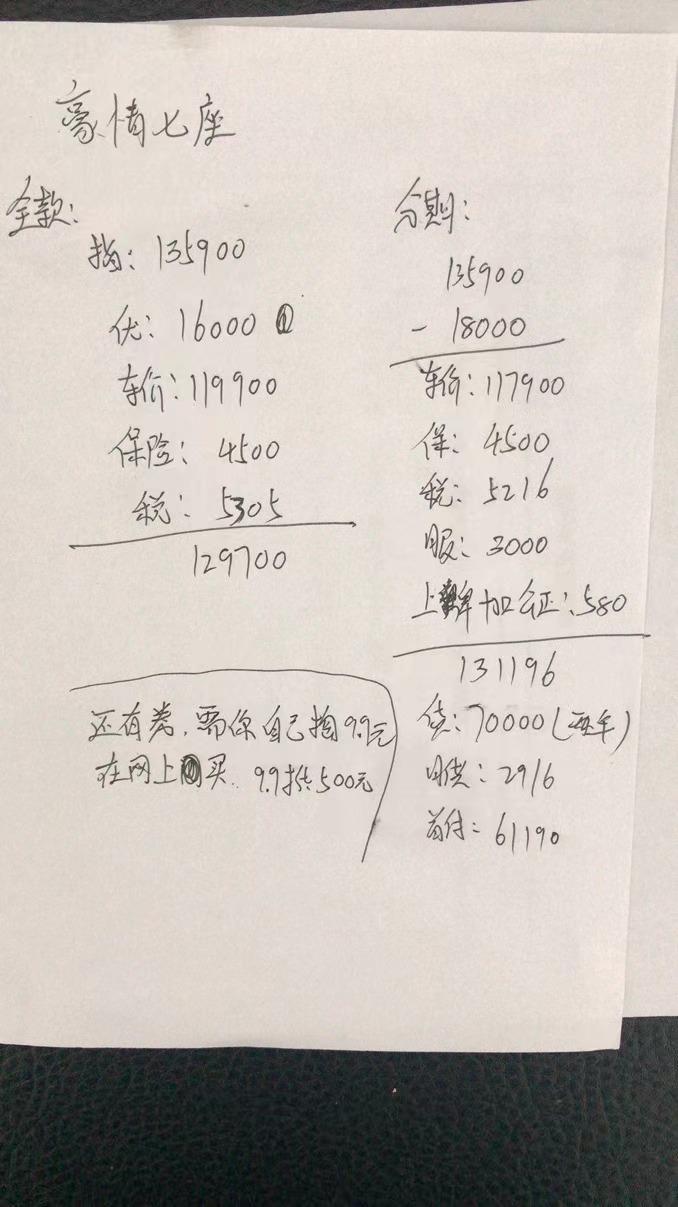 豪情七座
全款:
指: 135900
优: 16000
车价: 119900
保险: 4500
税: 5305
129700
还有券,需你自己掏9.9元
在网上买. 9.9抵500元
分期:
135900
- 18000
车价: 117900
保: 4500
税: 5216
服: 3000
上牌加证: 580
131196
贷: 70000 (两年)
月供: 2916
首付: 61190